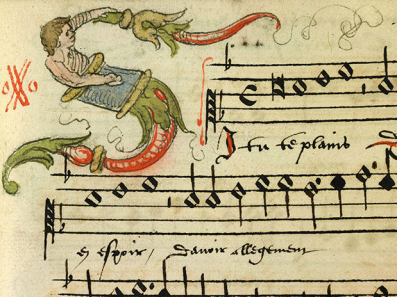 I tu te plains
en espoir / davoir allegement